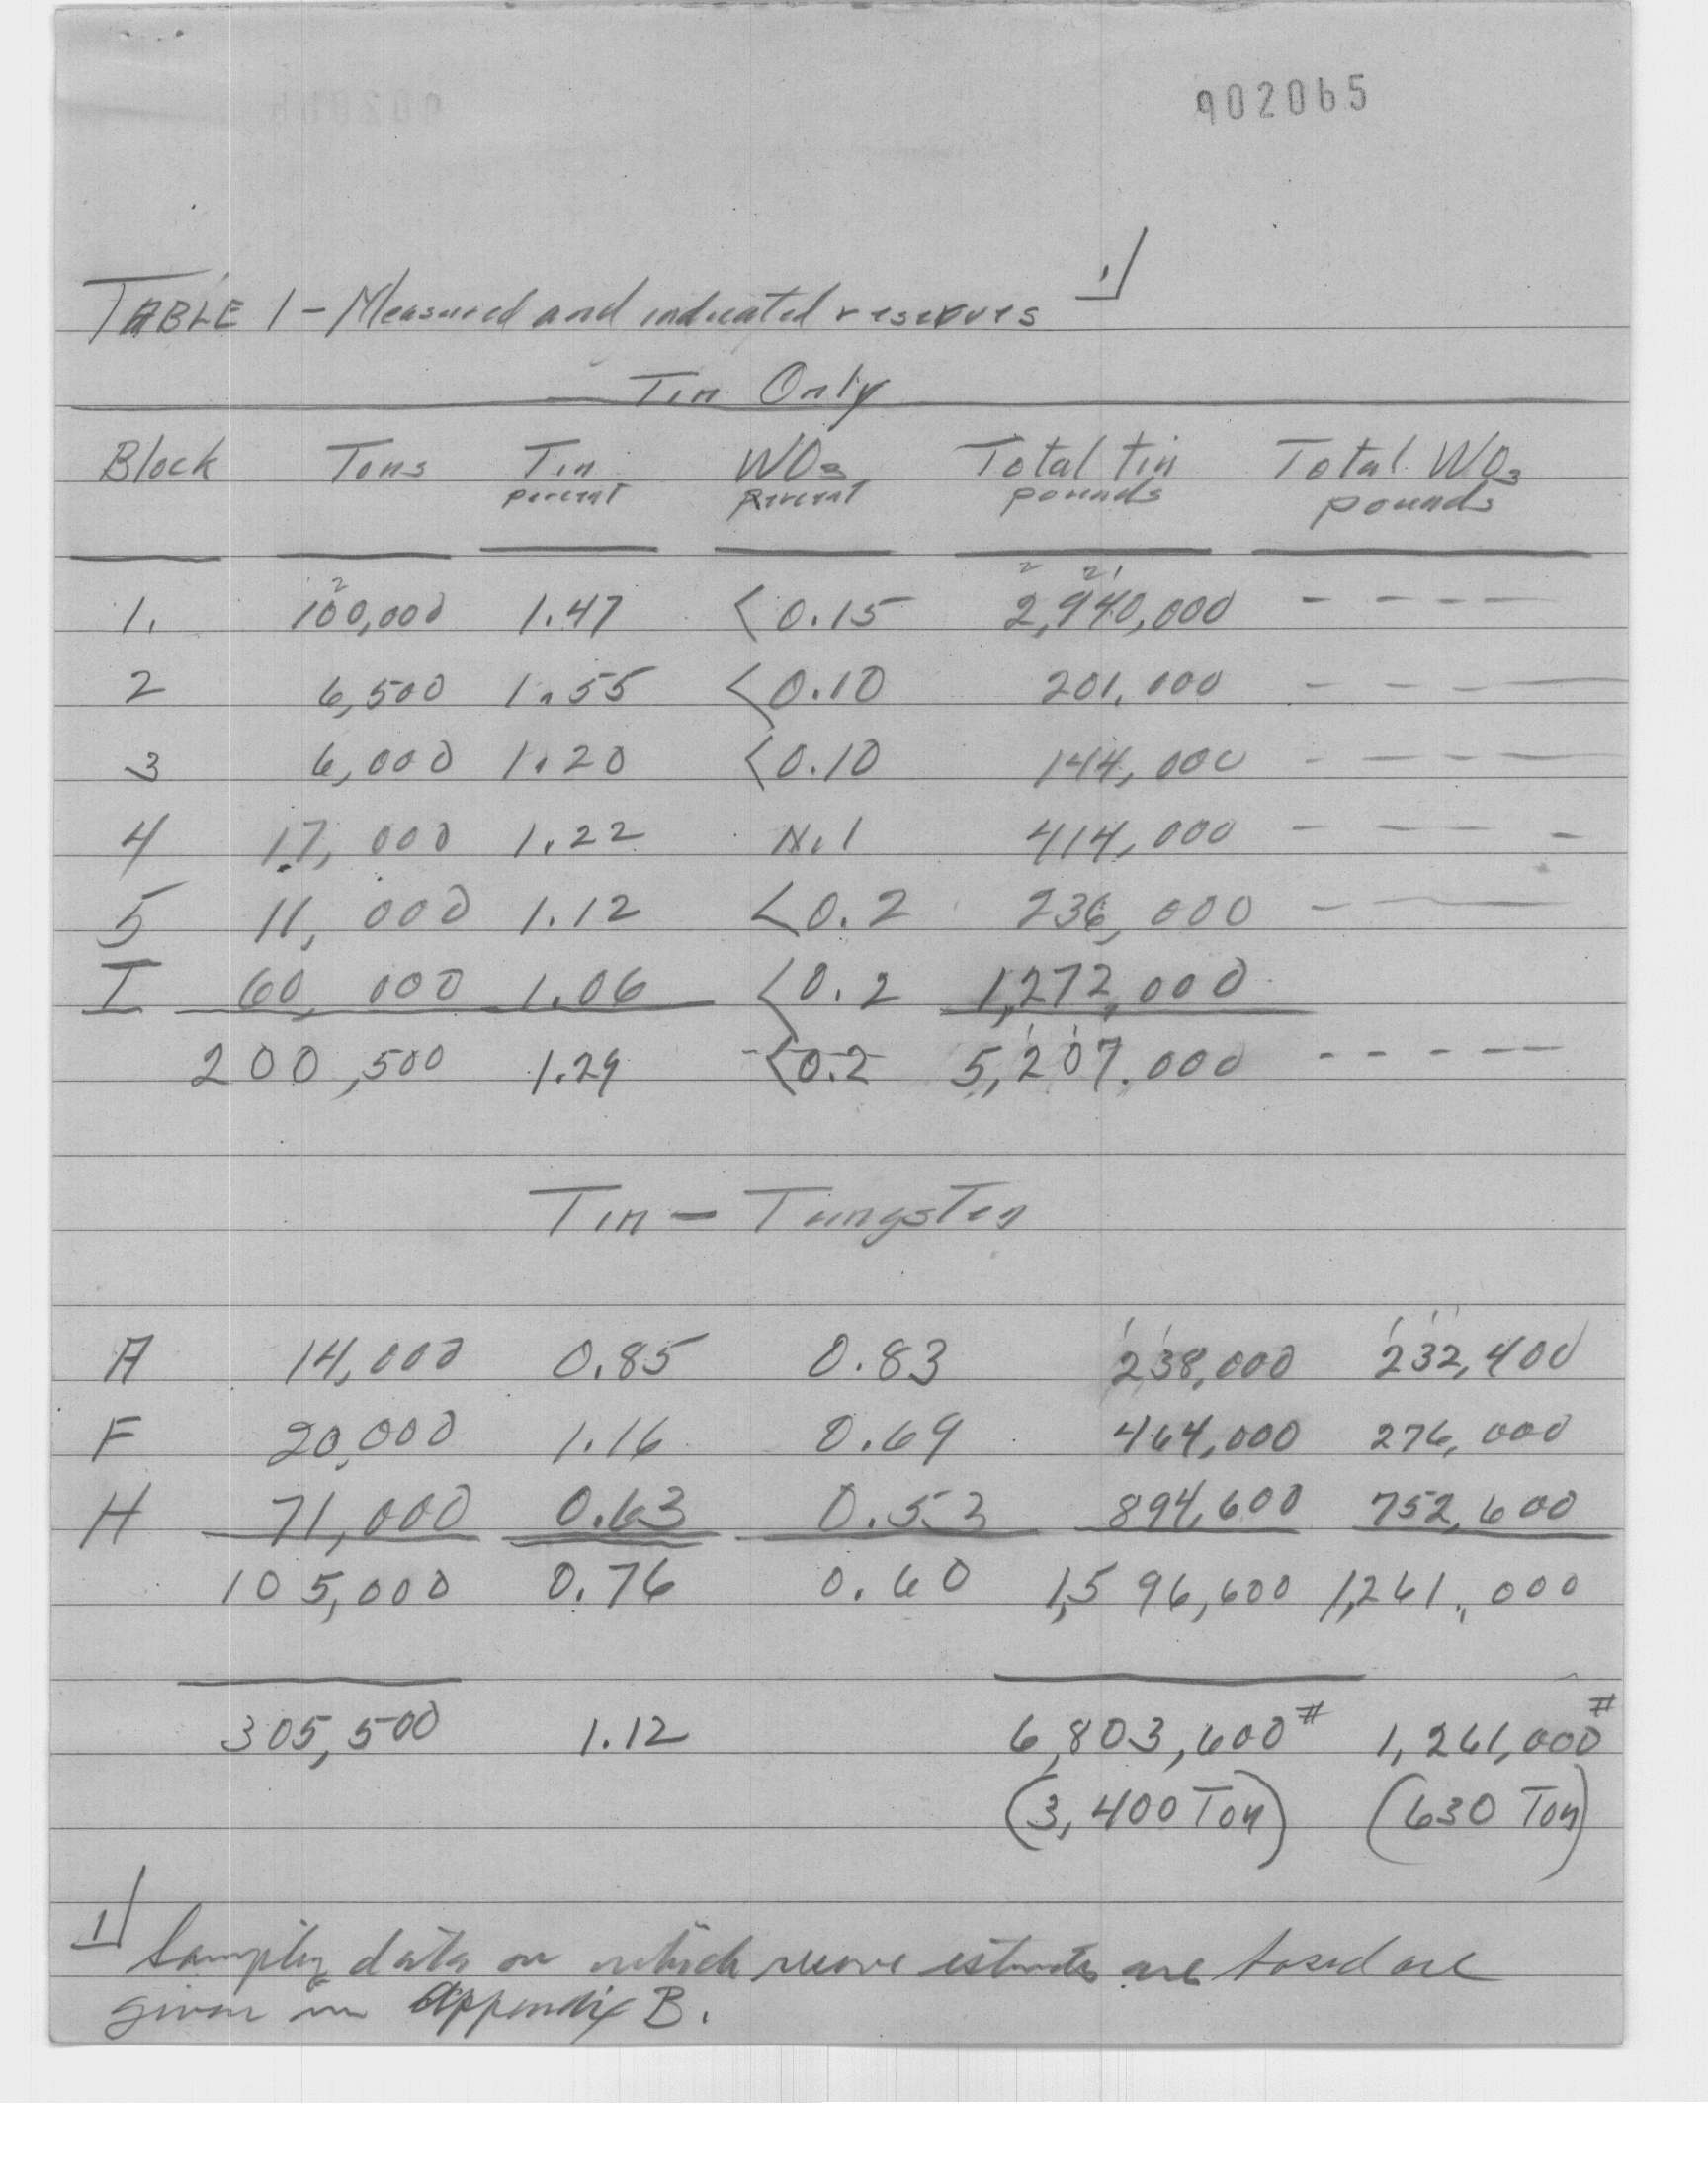 902065
TABLE 1 - Measured and indicated reserves 1/
Tin Only
Block Tons Tin percent WO3 percent Total tin pounds Total WO3 pounds
1. 100,000 1.47 <0.15 2,940,000 - - - -
2 6,500 1.55 <0.10 201,000 - - - -
3 6,000 1.20 <0.10 144,000 - - - -
4 17,000 1.22 N.1 414,000 - - - -
5 11,000 1.12 <0.2 236,000 - - -
I 60,000 1.06 <0.2 1,272,000
200,500 1.29 <0.2 5,207,000 - - - - -
Tin - Tungsten
A 14,000 0.85 0.83 238,000 232,400
F 20,000 1.16 0.69 464,000 276,000
H 71,000 0.63 0.53 894,600 752,600
105,000 0.76 0.60 1,596,600 1,261,000
305,500 1.12 6,803,600# 1,261,000#
(3,400 Ton) (630 Ton)
1/ Sampling data on which reserve estimates are based are
given in Appendix B.